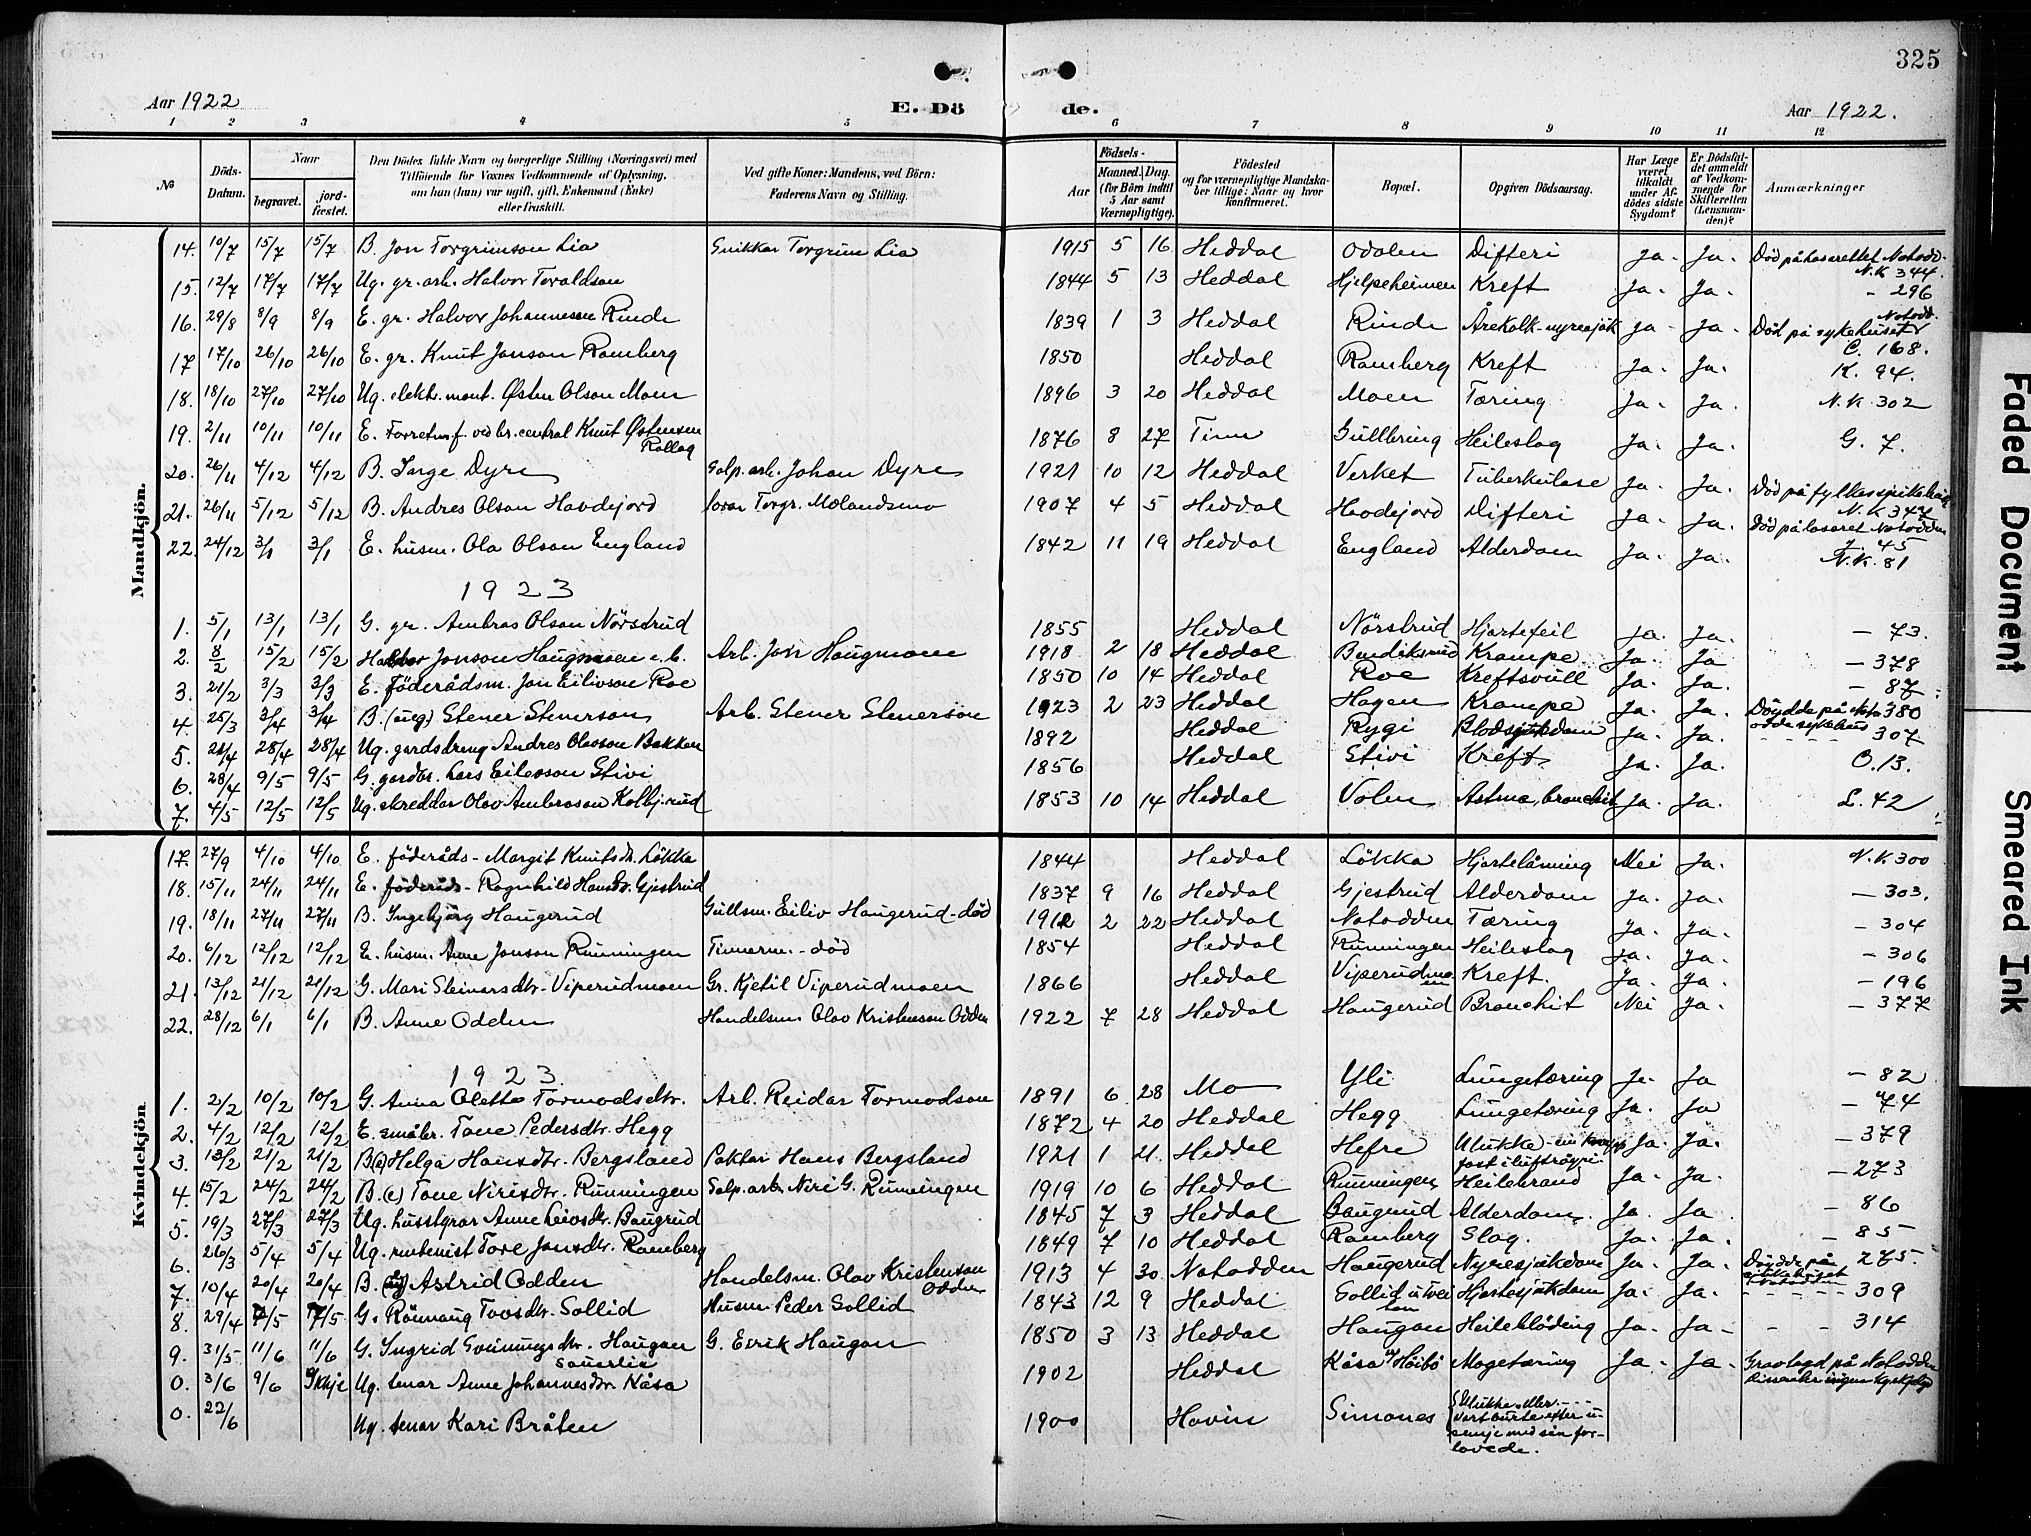 325
Aar 1922
E. Dö
de.
Aar 1922.
1 2 3 4 5 6 7 8 9 10 11 12
№ Döds-Datum. Naar begravet. jord-fæstet. Den Dödes fulde Navn og borgerlige Stilling (Næringsvei) med Tilföiende for Voxnes Vedkommende af Oplysning, om han (hun) var ugift, gift, Enkemand (Enke) eller fraskilt. Ved gifte Koner: Mandens, ved Börn: Faderens Navn og Stilling. Aar Födsels- Maaned. Dag. (for Börn indtil 5 Aar samt Værnepligtige). Födested og for værnepligtige Mandska-ber tillige: Naar og hvor konfirmeret. Bopæl. Opgiven Dödsaarsag. Har Læge været tilkaldt under Af-dödes sidste Sygdom? Er Dödsfal-det anmeldt af Vedkom-mende for Skifteretten (Lensman-den)? Anmærkninger
Mandkjön.
14. 10/7 15/7 15/7 B. Jon Torgrimson Lia Snikkar Torgrim Lia 1915 5 16 Heddal Odalen Difteri Ja. Ja. Död på lasarettet Notodd. N.K 344
15. 12/7 17/7 17/7 Ug. gr. arb. Halvor Toraldson 1844 5 13 Heddal Hjelpeheimen Kreft Ja. Ja. - 296
16. 29/8 8/9 8/9 E. gr. Halvor Johannesen Rinde 1839 1 3 Heddal Rinde Årekalk-nyresjuk Ja - Ja. Död på sykehuset Notodd. C. 168.
17 17/10 26/10 26/10 E. gr. Knut Jonson Ramberg 1850 Heddal Ramberg Kreft Ja. Ja. K. 94.
18. 18/10 27/10 27/10 Ug. elektr. mont. Østen Olson Moen 1896 3 20 Heddal Moen Tæring Ja. Ja. N.K. 302
19. 2/11 10/11 10/11 E. Forretn.f. ved br. central Knut Østensen Rollag 1876 8 27 Tinn Gullbring Heileslag Ja. Ja. G. 7.
20. 26/11 4/12 4/12 B. Inge Dyre Salp. arb. Johan Dyre 1921 10 12 Heddal Verket Tuberkulose Ja. Ja. Död på fylkessjukehus N.K 347
21. 26/11 5/12 5/12 B. Andres Olson Havdejord Torgr. Mælandsmo 1907 4 5 Heddal Hovdejord Difteri Ja. Ja. Död på lasaret Notodden 45
22. 24/12 3/1 3/1 E. husm. Ola Olson England 1842 11 19 Heddal England Alderdom Ja. Ja. N.K. 81
1923
1. 5/1 13/1 13/1 G. gr. Ambros Olson Nörstrud 1855 Heddal Nörstrud Hjartefeil Ja. Ja. - 73.
2. 8/2 15/2 15/2 Halvor Jonson Haugmoen e.b. Arb. Jon Haugmoen 1918 2 18 Heddal Bendiksrud Krampe Ja. Ja - 378
3. 21/2 3/3 3/3 E. föderådsm. Jon Eilivson Roe 1850 10 14 Heddal Roe Kreftsvull Ja. Ja. - 87
4. 25/3 3/4 3/4 B. (ueg) Stener Stenerson Arb. Stener Stenerson 1923 2 23 Heddal Hagen Krampe Ja. Ja. Döydde på Noto- 380 odde sykehus
5. 21/4 28/4 28/4 Ug. gardsdreng Andres Olavson Bakken 1892 Heddal Rygi Blodsjukdom Ja. Ja. - - - 307
6. 28/4 9/5 9/5 G. gardbr. Lars Eilevson Stivi 1856 Heddal Stivi Kreft Ja. Ja. O. 13.
7. 4/5 12/5 12/5 Ug. skreddar Olav Ambroson Kolbj.rud 1853 10 14 Heddal Volen Astma, bronchit Ja. Ja. L. 42
Kvindekjön
17. 27/9 4/10 4/10 E. föderåds- Margit Knutsdtr. Løkka 1844 Heddal Løkka Hjartelåming Nei Ja. N.K 300
18. 15/11 24/11 24/11 E. föderåds- Ragnhild Hansdtr. Gjestrud 1837 9 16 Heddal Gjestrud Alderdom Ja. Ja. - 303.
19. 18/11 27/11 27/11 B. Ingebjörg Haugerud Gullsm. Eiliv Haugerud-död 1912 2 22 Heddal Notodden Tæring Ja. Ja. - 304
20. 6/12 12/12 12/12 E. husm. Anne Jonson Runningen Timerm.-död 1854 Heddal Runningen Heileslag Ja. Ja. - 306
21. 13/12 21/12 21/12 G. Mari Steinarsdtr. Viperudmoen Gr. Kjetil Viperudmoen 1866 Heddal Viperudmoen Kreft. Ja. Ja. - 196
22. 28/12 6/1 6/1 B. Anne Odden Handelsm. Olav Kristenson Odden 1922 7 28 Heddal Haugerud Bronchit Nei Ja. - 377
1923.
1. 2/2 10/2 10/2 G. Anna Olette Tormodsdtr. Arb. Reidar Tormodson 1891 6 28 Mo Yli Lungetæring Ja. Ja - 82
2. 4/2 12/2 12/2 E. småbr. Tone Pedersdtr. Hegg 1872 4 20 Heddal Hegg Lungetæring Ja. Ja - 74
3. 13/2 21/2 21/2 B (e) Helga Hansdtr. Bergsland Paktar Hans Bergsland 1921 1 21. Heddal Hefre Ulukke - ein knapp fast i luftröyri Ja. Ja. - 379
4. 15/2 24/2 24/2 B. (e) Tone Nirisdtr. Runningen Salp.arb. Niri G. Runningen 1919 10 6 Heddal Runningen Heilebrand Ja. Ja. - 273
5. 19/3 27/3 27/3 Ug. husstgrar Anne Leivsdtr. Baugrud 1845 7 3 Heddal Baugrud Alderdom. Ja. Ja - 86
6. 26/3 5/4 5/4 Ug. rentenist Tore Jonsdtr. Ramberg 1849 7 10 Heddal Ramberg Slag. Ja. Ja. - 85
7 10/4 20/4 20/4 B. Astrid Odden Handelsm. Olav Kristenson Odden 1913 4 30. Notodden Haugerud Nyresjukdom Ja. Ja. Döydde på sjukehuset Notodden 275.
8 29/4 7/5 7/5 G. Rönnaug Tovsdtr. Sollid Husm. Peder Sollid 1843 12 9 Heddal Sollid Hjartesjukdom Ja. Ja. - - - - 309
9. 31/5 11/6 11/6 G. Ingrid Gunnungsdtr. Haugan G. Eirik Haugan 1850 3 13 Heddal Haugan Heileblöding Ja. Ja - - - 314
0. 3/6 9/6 Ikkje Ug. tenar Anne Johannesdtr. Kåsa Sauerlie 1902 Heddal Kåsa Höibö Magetæring Ja. Ja. Gravlagd på Notodden
0. 22/6 Ug. tenar Kari Bråten 1900 Hovin Simones Ulukke eller - - - Vart burte efter usemje med sin forlovede.
Faded Document
Smeared Ink